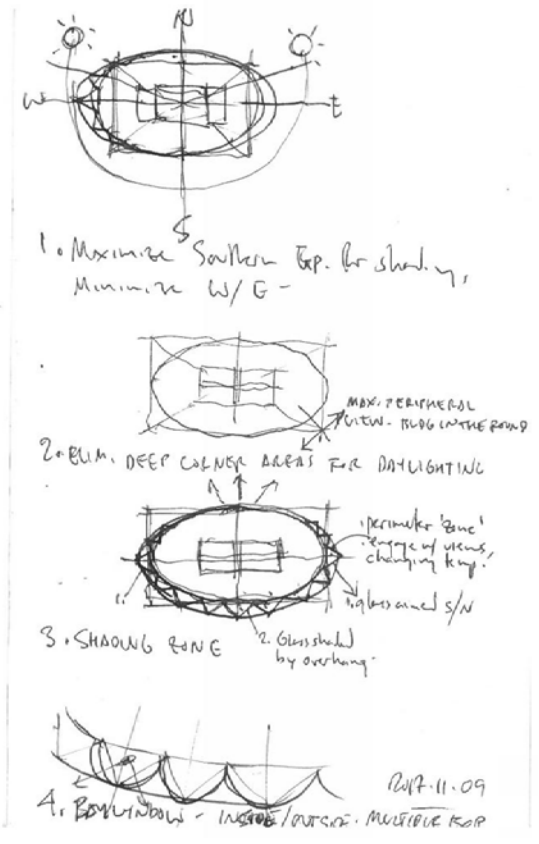 N
W
E
S
1. Maximize Southern Exp. for shading,
Minimize W/E -
MAX. PERIPHERAL
VIEW - BLDG IN THE ROUND
2. ELIM. DEEP CORNER AREAS FOR DAYLIGHTING
perimeter 'zone'
engage w/ views,
changing temp.
1.
1. glass aimed S/N
3. SHADING ZONE
2. Glass shaded
by overhang.
11.09
4. BAYWINDOW - INSIDE/OUTSIDE - MULTIPLE